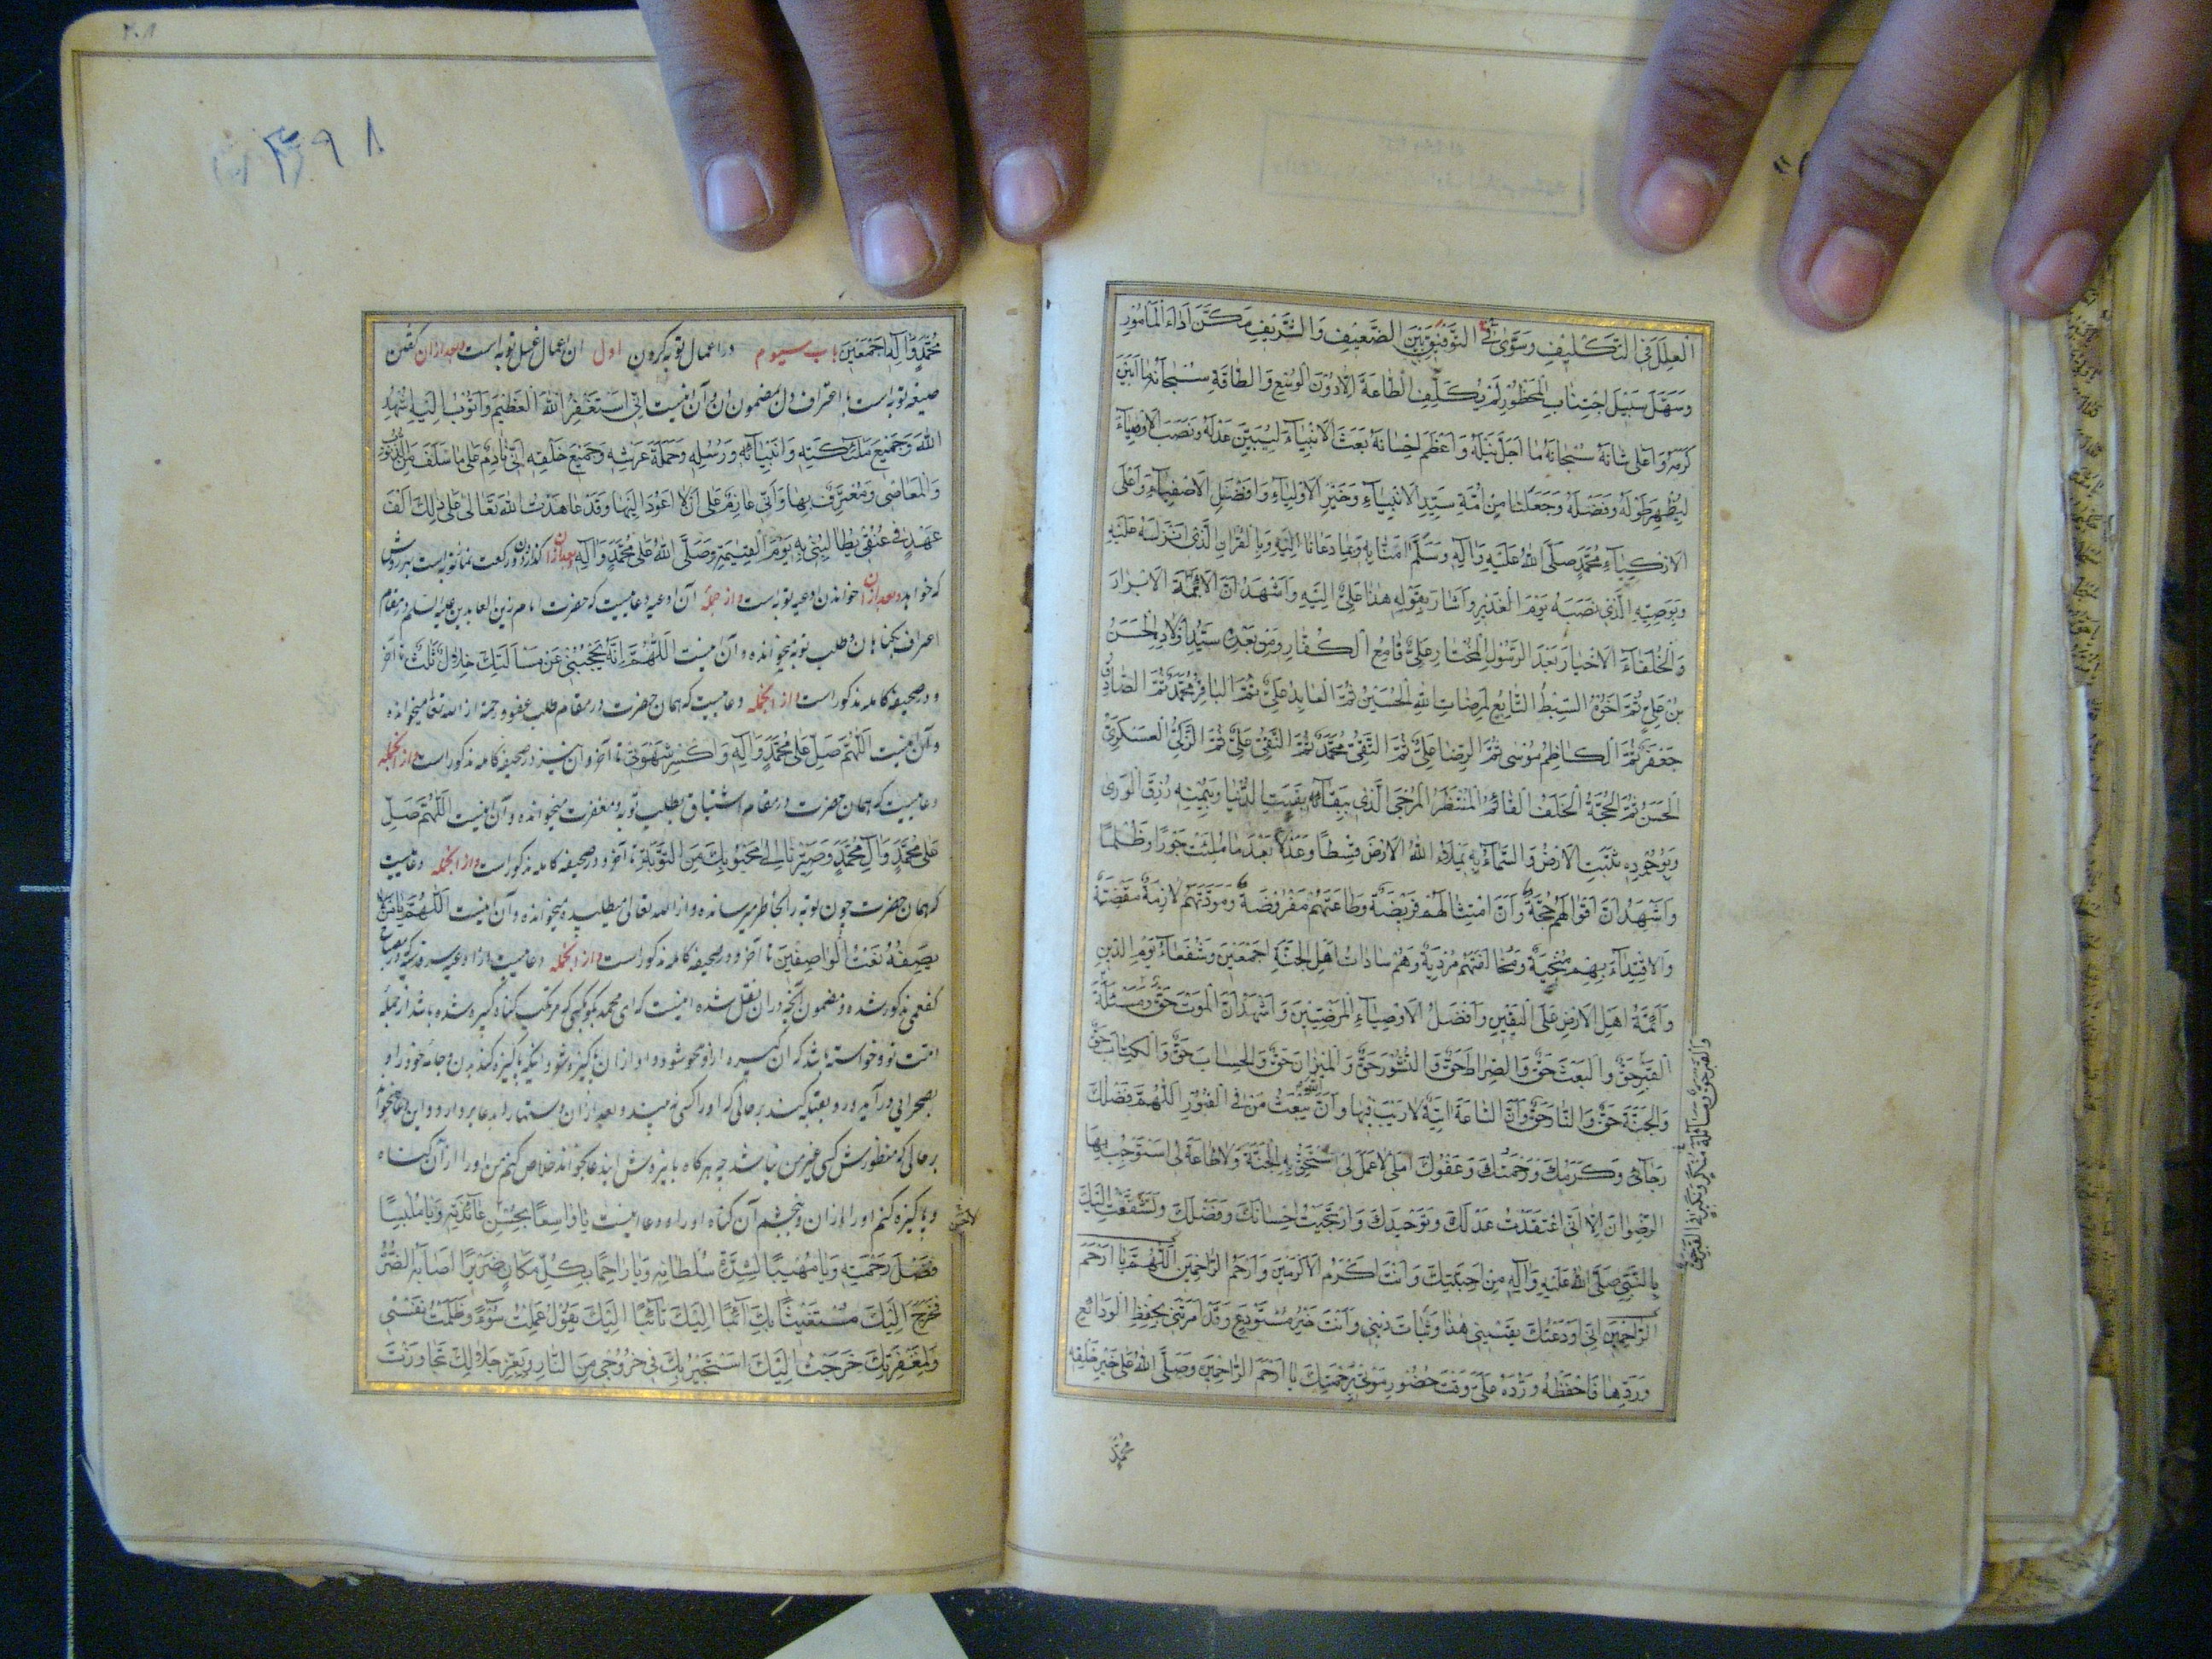 الْعِلَلَ فِي التَّكْلِيفِ وَسَوَّى التَّوْفِيقَ بَيْنَ الضَّعِيفِ وَالشَّرِيفِ مَكَّنَ اَدَاءَ الْمَأْمُورِ
وَسَهَّلَ سَبِيلَ اجْتِنَابِ الْمَحْظُورِ لَمْ يُكَلِّفِ الطَّاعَةَ اِلَّا دُونَ الْوُسْعِ وَالطَّاقَةِ سُبْحَانَهُ مَا اَبْيَنَ
كَرَمَهُ وَاَعْلَى شَانَهُ سُبْحَانَهُ مَا اَجَلَّ نَيْلَهُ وَاَعْظَمَ اِحْسَانَهُ بَعَثَ الْاَنْبِيَاءَ لِيُبَيِّنَ عَدْلَهُ وَنَصَبَ الْاَوْصِيَاءَ
لِيُظْهِرَ طَوْلَهُ وَفَضْلَهُ وَجَعَلَنَا مِنْ اُمَّةِ سَيِّدِ الْاَنْبِيَاءِ وَخَيْرِ الْاَوْلِيَاءِ وَاَفْضَلِ الْاَصْفِيَاءِ وَاَعْلَى
الْاَزْكِيَاءِ مُحَمَّدٍ صَلَّى اللهُ عَلَيْهِ وَآلِهِ وَسَلَّمَ اٰمَنَّا بِهِ وَبِمَا دَعَانَا اِلَيْهِ وَبِالْقُرْاٰنِ الَّذِي اَنْزَلَهُ عَلَيْهِ
وَبِوَصِيِّهِ الَّذِي نَصَبَهُ يَوْمَ الْغَدِيرِ وَاَشَارَ بِقَوْلِهِ هٰذَا عَلِيٌّ اِلَيْهِ وَاَشْهَدُ اَنَّ الْاَئِمَّةَ الْاَبْرَارَ
وَالْخُلَفَاءَ الْاَخْيَارَ بَعْدَ الرَّسُولِ الْمُخْتَارِ عَلِيٌّ قَامِعُ الْكُفَّارِ وَمِنْ بَعْدِهِ سَيِّدُ اَوْلَادِهِ الْحَسَنُ
بْنُ عَلِيٍّ ثُمَّ اَخُوهُ السِّبْطُ التَّابِعُ لِمَرْضَاتِ اللهِ الْحُسَيْنُ ثُمَّ الْعَابِدُ عَلِيٌّ ثُمَّ الْبَاقِرُ مُحَمَّدٌ ثُمَّ الصَّادِقُ
جَعْفَرٌ ثُمَّ الْكَاظِمُ مُوسَى ثُمَّ الرِّضَا عَلِيٌّ ثُمَّ التَّقِيُّ مُحَمَّدٌ ثُمَّ النَّقِيُّ عَلِيٌّ ثُمَّ الزَّكِيُّ الْعَسْكَرِيُّ
الْحَسَنُ ثُمَّ الْحُجَّةُ الْخَلَفُ الْقَائِمُ الْمُنْتَظَرُ الْمُرْجَى الَّذِي بِبَقَائِهِ بَقِيَتِ الدُّنْيَا وَبِيُمْنِهِ رُزِقَ الْوَرَى
وَبِوُجُودِهِ ثَبَتَتِ الْاَرْضُ وَالسَّمَاءُ بِهِ يَمْلَأُ اللهُ الْاَرْضَ قِسْطًا وَعَدْلًا بَعْدَ مَا مُلِئَتْ جَوْرًا وَظُلْمًا
وَاَشْهَدُ اَنَّ اَقْوَالَهُمْ حُجَّةٌ وَاَنَّ امْتِثَالَهُمْ فَرِيضَةٌ وَطَاعَتَهُمْ مَفْرُوضَةٌ وَمَوَدَّتَهُمْ لَازِمَةٌ مَقْضِيَّةٌ
وَالْاِقْتِدَاءَ بِهِمْ مُنْجِيَةٌ وَمُخَالَفَتَهُمْ مُرْدِيَةٌ وَهُمْ سَادَاتُ اَهْلِ الْجَنَّةِ اَجْمَعِينَ وَشُفَعَاءُ يَوْمِ الدِّينِ
وَاَئِمَّةُ اَهْلِ الْاَرْضِ عَلَى الْيَقِينِ وَاَفْضَلُ الْاَوْصِيَاءِ الْمَرْضِيِّينَ وَاَشْهَدُ اَنَّ الْمَوْتَ حَقٌّ وَمَسْئَلَةَ
الْقَبْرِ حَقٌّ وَالْبَعْثَ حَقٌّ وَالصِّرَاطَ حَقٌّ وَالنُّشُورَ حَقٌّ وَالْمِيزَانَ حَقٌّ وَالْحِسَابَ حَقٌّ وَالْكِتَابَ حَقٌّ
وَالْجَنَّةَ حَقٌّ وَالنَّارَ حَقٌّ وَاَنَّ السَّاعَةَ اٰتِيَةٌ لَا رَيْبَ فِيهَا وَاَنَّ اللهَ يَبْعَثُ مَنْ فِي الْقُبُورِ اَللّٰهُمَّ فَضْلُكَ
رَجَائِي وَكَرَمُكَ وَرَحْمَتُكَ وَعَفْوُكَ اَمَلِي لَا عَمَلَ لِي اَسْتَحِقُّ بِهِ الْجَنَّةَ وَلَا طَاعَةَ لِي اَسْتَوْجِبُ بِهَا
الرِّضْوَانَ اِلَّا اَنِّي اعْتَقَدْتُ عَدْلَكَ وَتَوْحِيدَكَ وَارْتَجَيْتُ اِحْسَانَكَ وَفَضْلَكَ وَتَشَفَّعْتُ اِلَيْكَ
بِالنَّبِيِّ صَلَّى اللهُ عَلَيْهِ وَآلِهِ مِنْ اَحِبَّتِكَ وَاَنْتَ اَكْرَمُ الْاَكْرَمِينَ وَاَرْحَمُ الرَّاحِمِينَ اَللّٰهُمَّ يَا اَرْحَمَ
الرَّاحِمِينَ اِنِّي اَوْدَعْتُكَ يَقِينِي هٰذَا وَثَبَاتَ دِينِي وَاَنْتَ خَيْرُ مُسْتَوْدَعٍ وَقَدْ اَمَرْتَنِي بِحِفْظِ الْوَدَائِعِ
وَرَدِّهَا فَاحْفَظْهُ وَرُدَّهُ عَلَيَّ وَقْتَ حُضُورِ مَوْتِي بِرَحْمَتِكَ يَا اَرْحَمَ الرَّاحِمِينَ وَصَلَّى اللهُ عَلَى خَيْرِ خَلْقِهِ
مُحَمَّدٍ
۳۹۸
مُحَمَّدٍ وَآلِهِ اَجْمَعِينَ باب سیوم در اعمال توبه کردن اول آن اعمال غسل توبه است بعد از آن گفتن
صیغه توبه است با اعتراف دل بمضمون آن و آن اینست اِنِّي اَسْتَغْفِرُ اللهَ الْعَظِيمَ وَاَتُوبُ اِلَيْهِ اُشْهِدُ
اللهَ وَجَمِيعَ مَلٰئِكَتِهِ وَاَنْبِيَائِهِ وَرُسُلِهِ وَحَمَلَةَ عَرْشِهِ وَجَمِيعَ خَلْقِهِ اَنِّي نَادِمٌ عَلَى مَا سَلَفَ مِنَ الذُّنُوبِ
وَالْمَعَاصِي وَمُعْتَرِفٌ بِهَا وَاَنِّي عَازِمٌ عَلَى اَنْ لَا اَعُودَ اِلَيْهَا وَقَدْ عَاهَدْتُ اللهَ تَعَالَى عَلَى ذٰلِكَ اَلْفَ
عَهْدٍ فِي عُنُقِي يُطَالِبُنِي بِهِ يَوْمَ الْقِيٰمَةِ وَصَلَّى اللهُ عَلَى مُحَمَّدٍ وَآلِهِ بعد از آن گذاردن دو رکعت نماز توبه است بهر روش
که خواهد بعد از آن خواندن ادعیه توبه است و از جمله آن ادعیه دعاییست که حضرت امام زین العابدین علیه السلم در مقام
اعتراف بگناهان و طلب توبه میخوانده و آن اینست اَللّٰهُمَّ اِنَّهُ يَحْجُبُنِي عَنْ مَسْأَلَتِكَ خِلَالٌ ثَلٰثٌ تا آخر
و در صحیفه کامله مذکور است و از آنجمله دعاییست که همان حضرت در مقام طلب عفو و رحمة از الله تعالی میخوانده
و آن اینست اَللّٰهُمَّ صَلِّ عَلَى مُحَمَّدٍ وَآلِهِ وَاكْسِرْ شَهْوَتِي تا آخر و آن نیز در صحیفه کامله مذکور است و از آنجمله
دعاییست که همان حضرت در مقام اشتیاق بطلب توبه و مغفرت میخوانده و آن اینست اَللّٰهُمَّ صَلِّ
عَلَى مُحَمَّدٍ وَآلِ مُحَمَّدٍ وَصَيِّرْنَا اِلَى مَحْبُوبِكَ مِنَ التَّوْبَةِ تا آخر و در صحیفه کامله مذکور است و از آنجمله دعاییست
که همان حضرت چون توبه را بخاطر میرسانده و از الله تعالی میطلبیده میخوانده و آن اینست اَللّٰهُمَّ يَا مَنْ لَا
يَصِفُهُ نَعْتُ الْوَاصِفِينَ تا آخر و در صحیفه کامله مذکور است و از آنجمله دعاییست از ادعیه سر قدسیه که در مصباح
کفعمی مذکور شده و مضمون آنچه در آن نقل شده اینست که ای محمد بگو بکسی که مرتکب گناه کبیره شده باشد از جمله
امت تو و خواسته باشد که آن کبیره از او محو شود و او از آن پاکیزه شود اینکه پاکیزه کند بدن و جامه خود را و
بصحرایی درآید و رو بقبله کند بر حالی که او را کسی نه بیند و بعد از آن دستها را بدعا بردارد و این دعا بخواند
بر حالی که منظورش کسی غیر من نباشد چه هرگاه باینروش ایندعا بخواند خلاص کنم من او را از آن گناه
و پاکیزه کنم او را از آن و ببخشم آن گناه او را و دعا اینست يَا وَاسِعًا بِحُسْنِ عَائِدَتِهِ وَيَا مُلْبِسًا
فَضْلَ رَحْمَتِهِ وَيَا مُهِيبًا لِشِدَّةِ سُلْطَانِهِ وَيَا رَاحِمًا بِكُلِّ مَكَانٍ ضَرِيرًا اَصَابَهُ الضُّرُّ
فَخَرَجَ اِلَيْكَ مُسْتَغِيثًا بِكَ آئِبًا اِلَيْكَ تَائِبًا اِلَيْكَ يَقُولُ عَمِلْتُ سُوءً وَظَلَمْتُ نَفْسِي
وَلِمَغْفِرَتِكَ خَرَجْتُ اِلَيْكَ اَسْتَجِيرُ بِكَ فِي خُرُوجِي مِنَ النَّارِ وَبِعِزِّ جَلَالِكَ تَجَاوَزْتَ